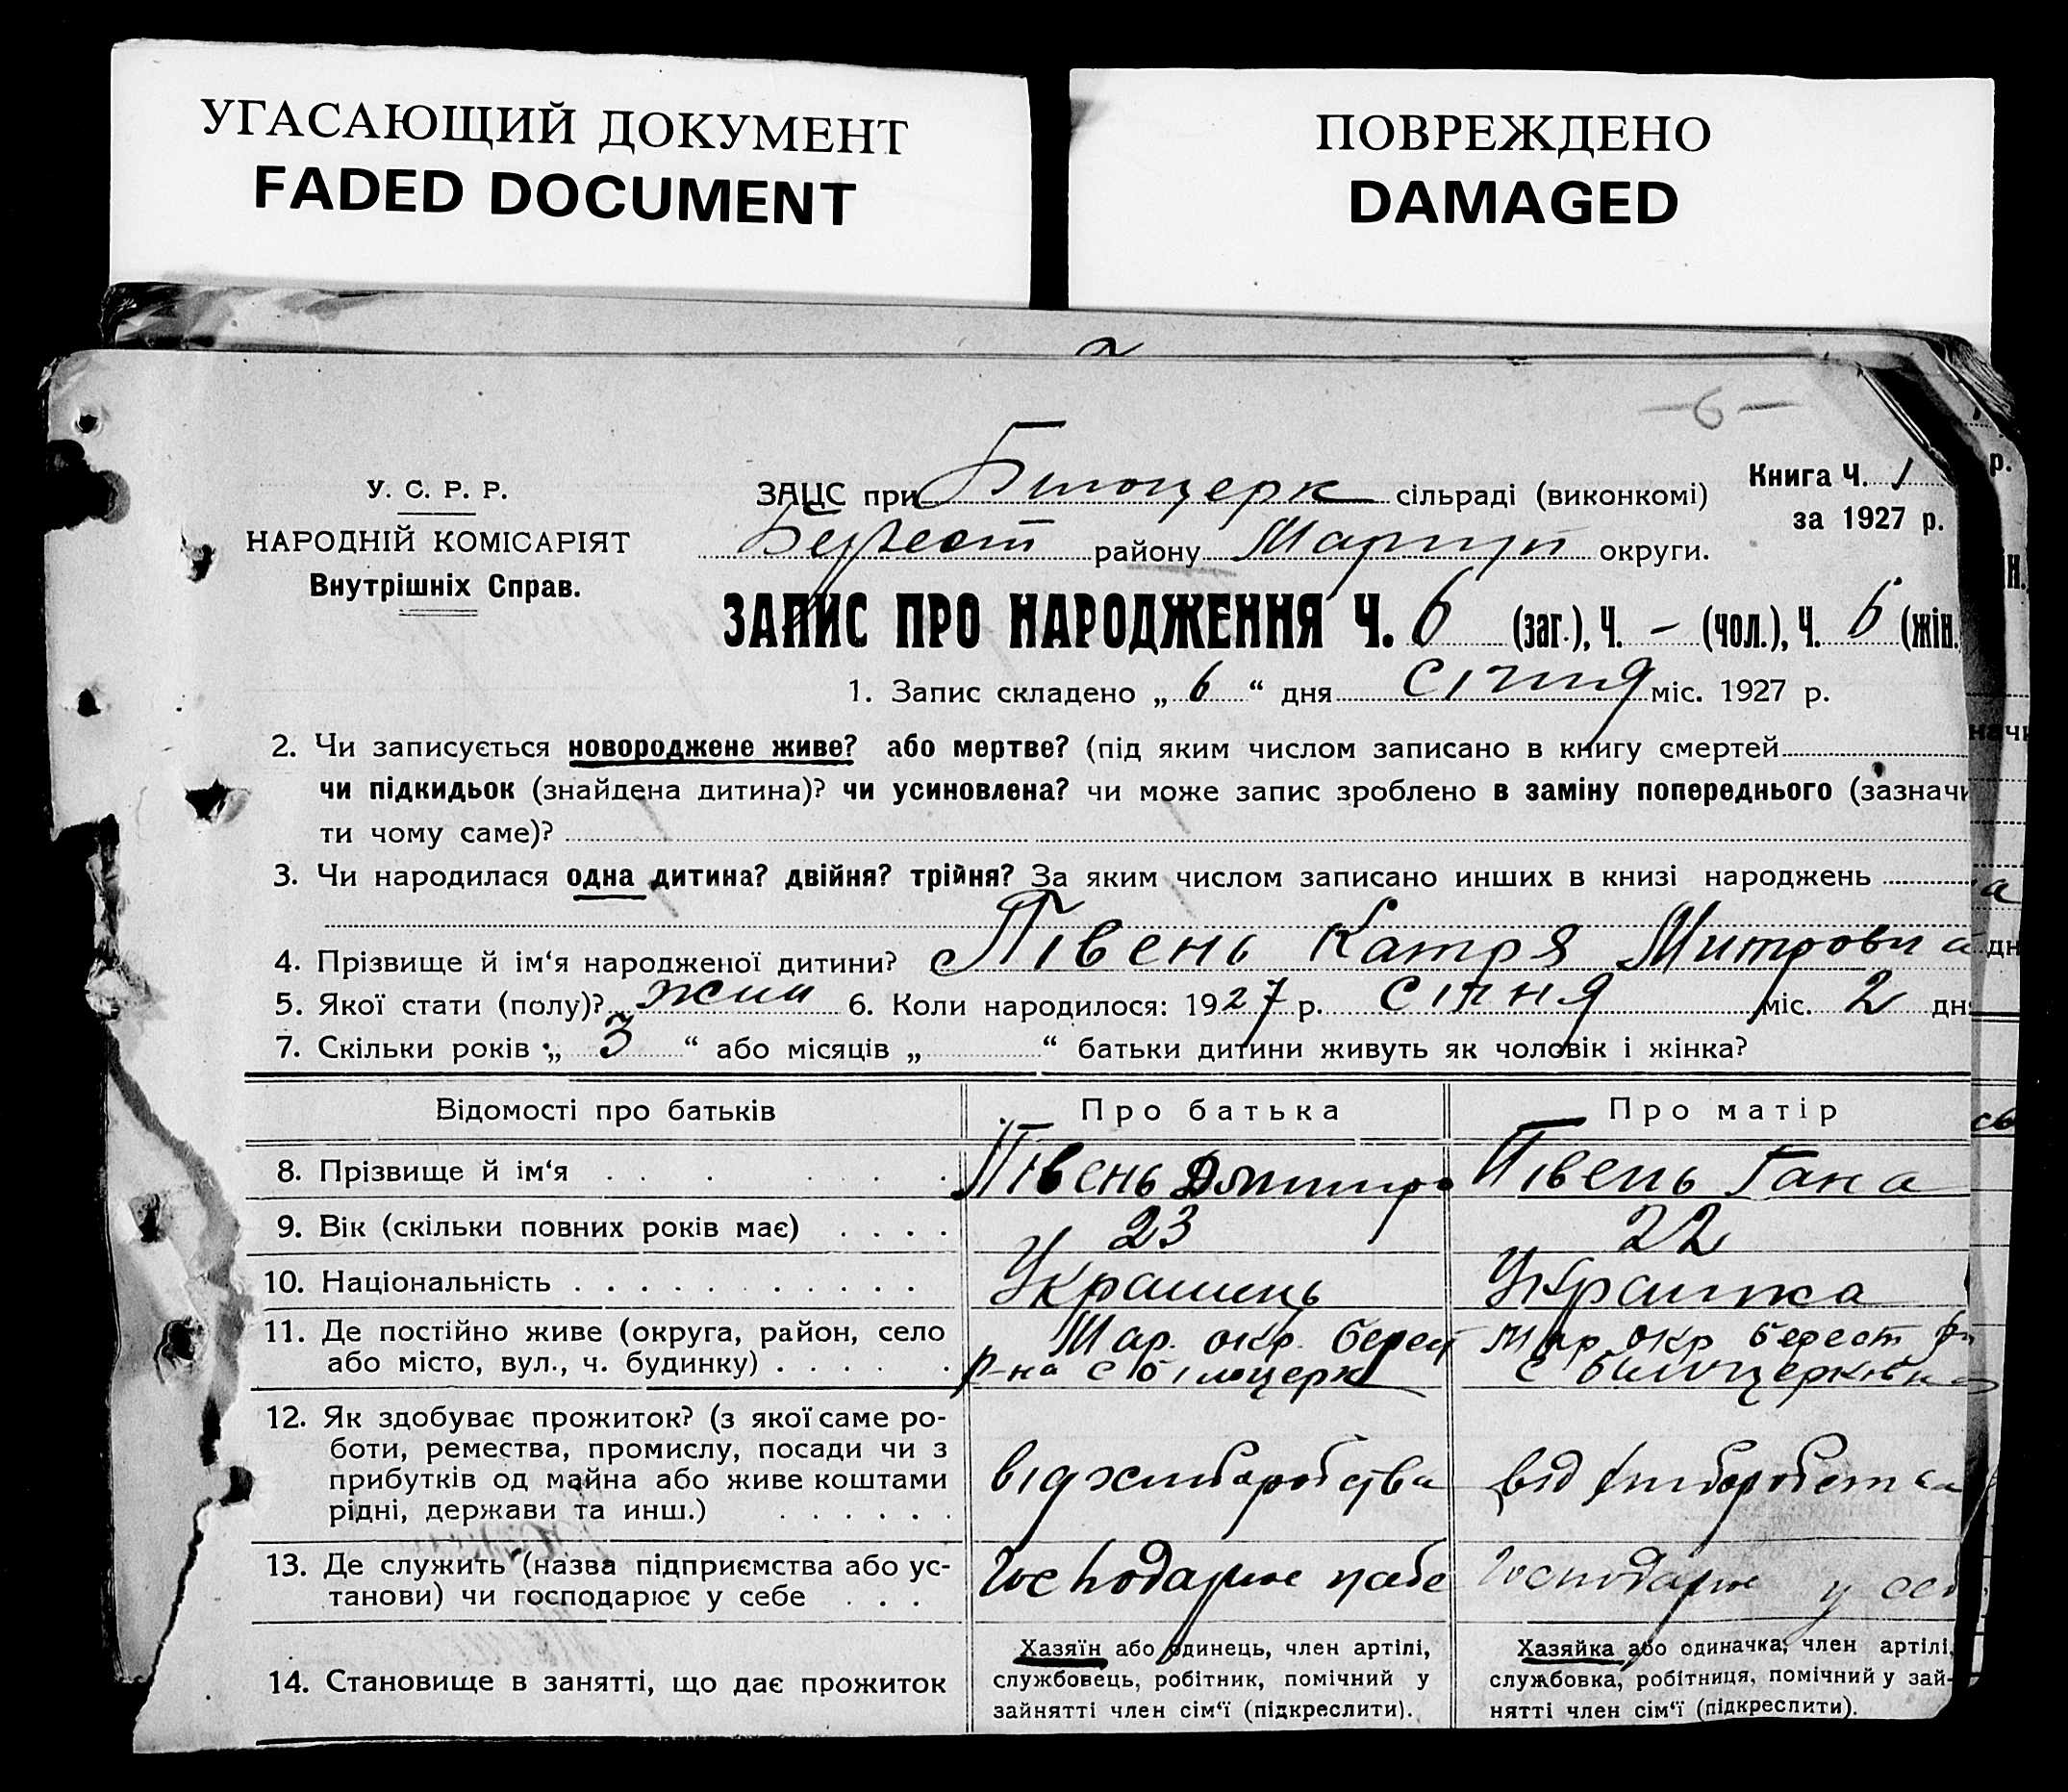 УГАСАЮЩИЙ ДОКУМЕНТ
FADED DOCUMENT
ПОВРЕЖДЕНО
DAMAGED
-6-
У. С. Р. Р.
НАРОДНІЙ КОМІСАРІЯТ
Внутрішніх Справ.
Книга Ч. 1
за 1927 р.
ЗАЦС при Білоцерк сільраді (виконкомі)
Берест району Маріуп округи.
ЗАПИС ПРО НАРОДЖЕННЯ Ч. 6 (заг.), Ч. - (чол.), Ч. 6 (жін.
1. Запис складено „ 6 “ дня січня міс. 1927 р.
2. Чи записується новороджене живе? або мертве? (під яким числом записано в книгу смертей
чи підкидьок (знайдена дитина)? чи усиновлена? чи може запис зроблено в заміну попереднього (зазначи
ти чому саме)?
3. Чи народилася одна дитина? двійня? трійня? За яким числом записано инших в книзі народжень
4. Прізвище й ім‘я народженої дитини? Півень Катря Митровна
5. Якої стати (полу)? жін 6. Коли народилося: 1927 р. січня міс. 2 дн
7. Скільки років „ 3 “ або місяців „ “ батьки дитини живуть як чоловік і жінка?
Відомості про батьків Про батька Про матір
8. Прізвище й ім‘я Півень Дмитро Півень Гана
9. Вік (скільки повних років має) 23 22
10. Національність Українець Українка
11. Де постійно живе (округа, район, село Мар. окр. берест Мар окр берест
або місто, вул., ч. будинку) р-на с білоцерк с білоцерківка
12. Як здобуває прожиток? (з якої саме ро-
боти, ремества, промислу, посади чи з
прибутків од майна або живе коштами від хліборобства від хліборобства
рідні, держави та инш.)
13. Де служить (назва підприємства або ус-
танови) чи господарює у себе Господарює у себе Господарює у себ
14. Становище в занятті, що дає прожиток
Хазяїн або одинець, член артілі,
службовець, робітник, помічний у
зайнятті член сім‘ї (підкреслити).
Хазяйка або одиначка, член артілі,
службовка, робітниця, помічний у зай-
нятті член сім‘ї (підкреслити).